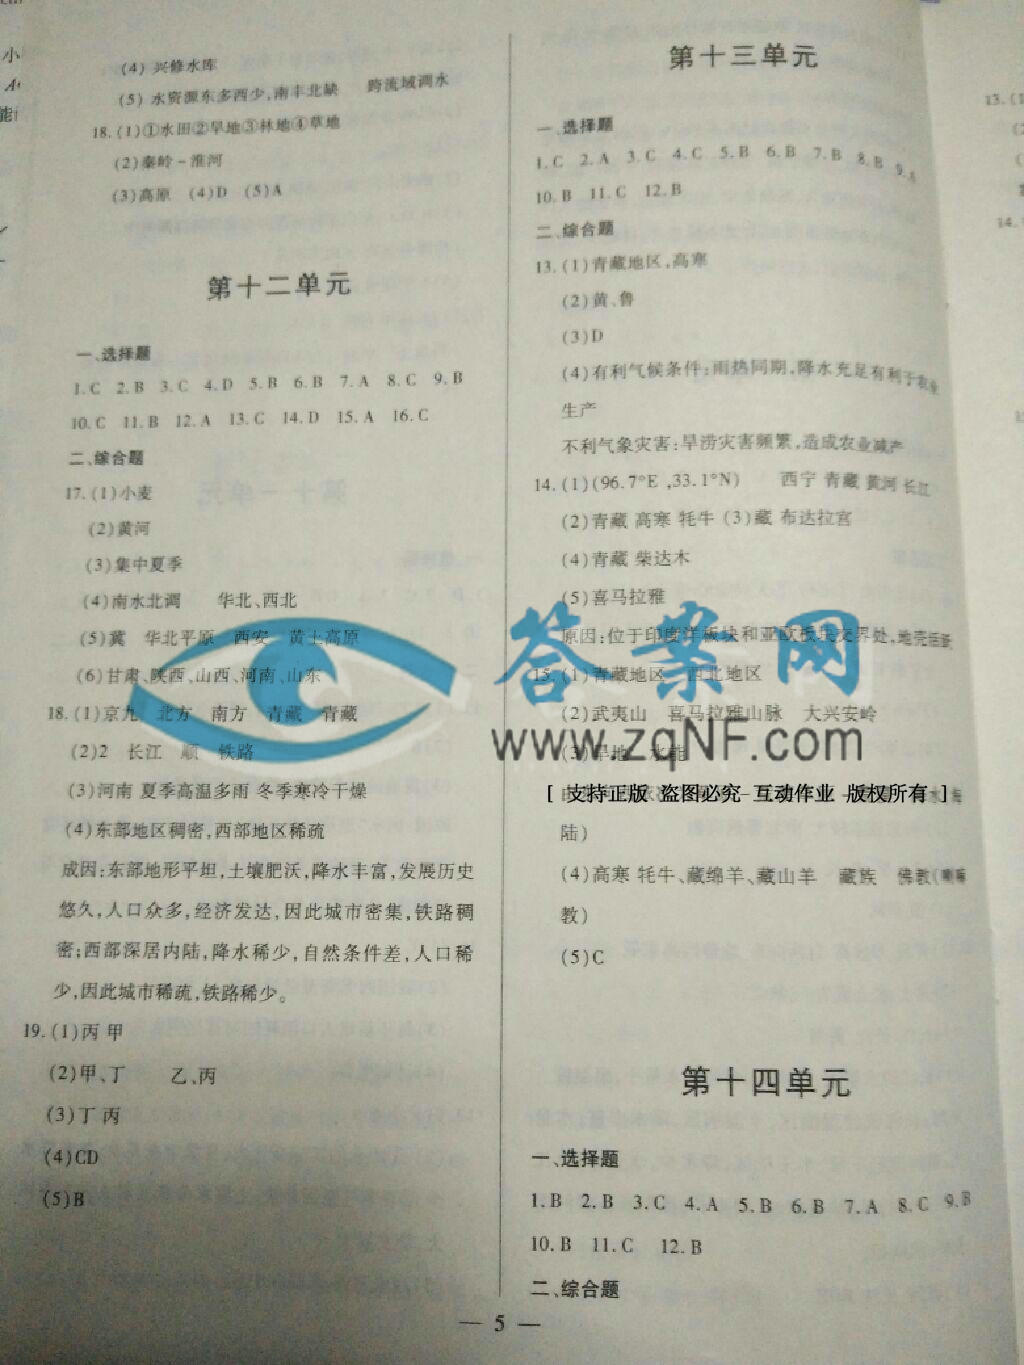 (4) 兴修水库
(5) 水资源东多西少,南丰北缺 跨流域调水
18.(1)①水田②旱地③林地④草地
(2)秦岭－淮河
(3)高原 (4)D (5)A
第十二单元
一、选择题
1.C 2.B 3.C 4.D 5.B 6.B 7.A 8.C 9.B
10.C 11.B 12.A 13.C 14.D 15.A 16.C
二、综合题
17.(1)小麦
(2)黄河
(3)集中夏季
(4)南水北调 华北、西北
(5)冀 华北平原 西安 黄土高原
(6)甘肃、陕西、山西、河南、山东
18.(1)京九 北方 南方 青藏 青藏
(2)2 长江 顺 铁路
(3)河南 夏季高温多雨 冬季寒冷干燥
(4)东部地区稠密,西部地区稀疏
成因:东部地形平坦,土壤肥沃,降水丰富,发展历史
悠久,人口众多,经济发达,因此城市密集,铁路稠
密;西部深居内陆,降水稀少,自然条件差,人口稀
少,因此城市稀疏,铁路稀少。
19.(1)丙 甲
(2)甲、丁 乙、丙
(3)丁 丙
(4)CD
(5)B
第十三单元
一、选择题
1.C 2.A 3.C 4.C 5.B 6.B 7.B 8.B 9.A
10.B 11.C 12.B
二、综合题
13.(1)青藏地区,高寒
(2)黄、鲁
(3)D
(4)有利气候条件:雨热同期,降水充足有利于农业
生产
不利气象灾害:旱涝灾害频繁,造成农业减产
14.(1)(96.7°E,33.1°N) 西宁 青藏 黄河 长江
(2)青藏 高寒 牦牛 (3)藏 布达拉宫
(4)青藏 柴达木
(5)喜马拉雅
原因:位于印度洋板块和亚欧板块交界处,地壳活跃
15.(1)青藏地区 西北地区
(2)武夷山 喜马拉雅山脉 大兴安岭
(3)旱地 水能
答案网
www.zqNF.com
[ 支持正版 盗图必究 - 互动作业 -版权所有 ]
陆)
(4)高寒 牦牛、藏绵羊、藏山羊 藏族 佛教(喇嘛
教)
(5)C
第十四单元
一、选择题
1.B 2.B 3.C 4.A 5.B 6.B 7.A 8.C 9.B
10.B 11.C 12.B
二、综合题
— 5 —
13.(1
14.